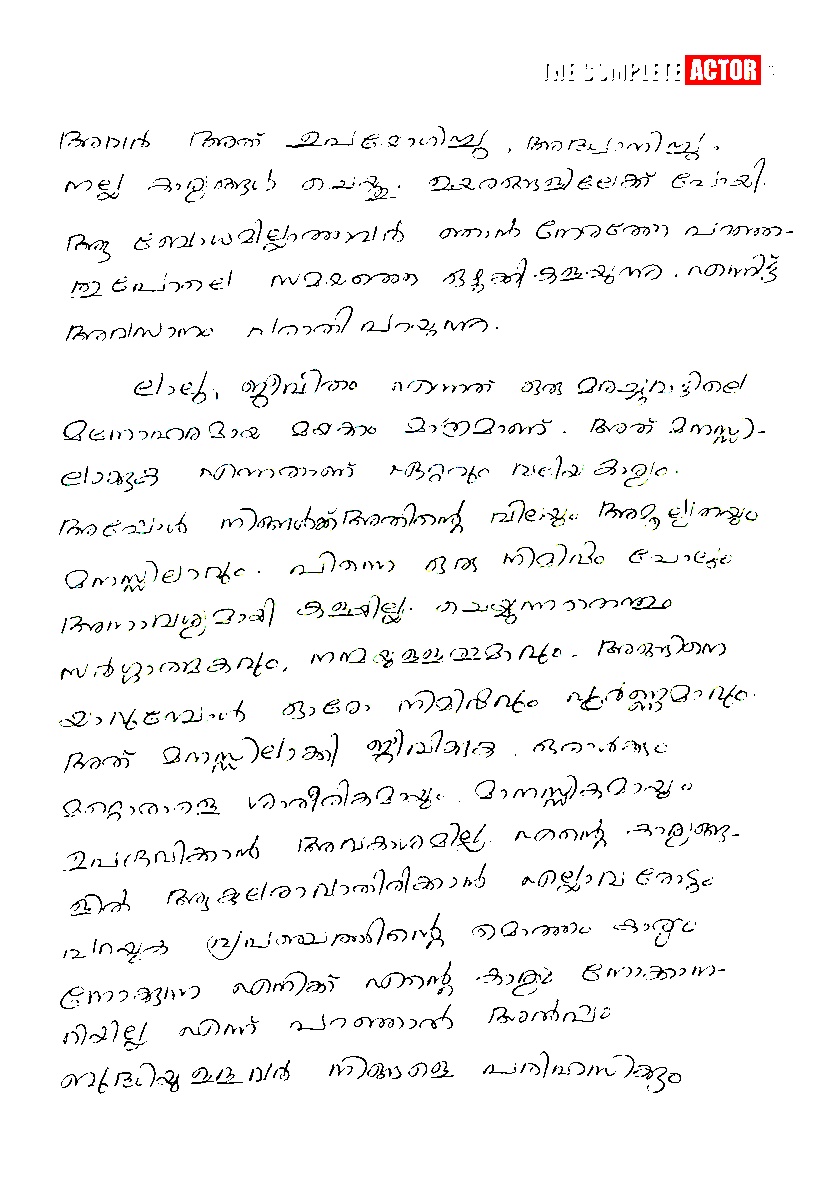 THE COMPLETE ACTOR
അവർ അത് ഉപയോഗിച്ചു, അദ്ധ്വാനിച്ചു,
നല്ല കാര്യങ്ങൾ ചെയ്തു. ഉയരങ്ങളിലേക്ക് പോയി.
ആ ബോധമില്ലാത്തവർ ഞാൻ നേരത്തെ പറഞ്ഞ-
തു പോലെ സമയത്തെ ഭുജിക്കളയുന്നു. എന്നിട്ട്
അവസാനം പരാതി പറയുന്നു.
ലാലു, ജീവിതം എന്നത് ഒരു മരച്ചുവട്ടിലെ
മനോഹരമായ മയക്കം മാത്രമാണ്. അത് മനസ്സി-
ലാക്കുക എന്നതാണ് ഏറ്റവും വലിയ കാര്യം.
അപ്പോൾ നിങ്ങൾക്ക് അതിന്റെ വിലയും അമൂല്യതയും
മനസ്സിലാവും. പിന്നെ ഒരു നിമിഷം പോലും
അനാവശ്യമായി കളയില്ല. ചെയ്യുന്നതെന്തും
സർഗ്ഗാത്മകവും, നന്മയുള്ളതുമാവും. അങ്ങിനെ
യാവുമ്പോൾ ഓരോ നിമിഷവും പൂർണ്ണമാവും.
അത് മനസ്സിലാക്കി ജീവിക്കുക. ഒരാൾക്കും
മറ്റൊരാളെ ശാരീരികമായും മാനസ്സികമായും
ഉപദ്രവിക്കാൻ അവകാശമില്ല. എന്റെ കാര്യങ്ങ-
ളിൽ ആകുലരാവാതിരിക്കാൻ എല്ലാവരോടും
പറയുക. പ്രപഞ്ചത്തിന്റെ മൊത്തം കാര്യം
നോക്കുന്ന എനിക്ക് എന്റെ കാര്യം നോക്കാന-
റിയില്ല എന്ന് പറഞ്ഞാൽ അൽപം
ബുദ്ധിയുള്ളവർ നിങ്ങളെ പരിഹസിക്കും